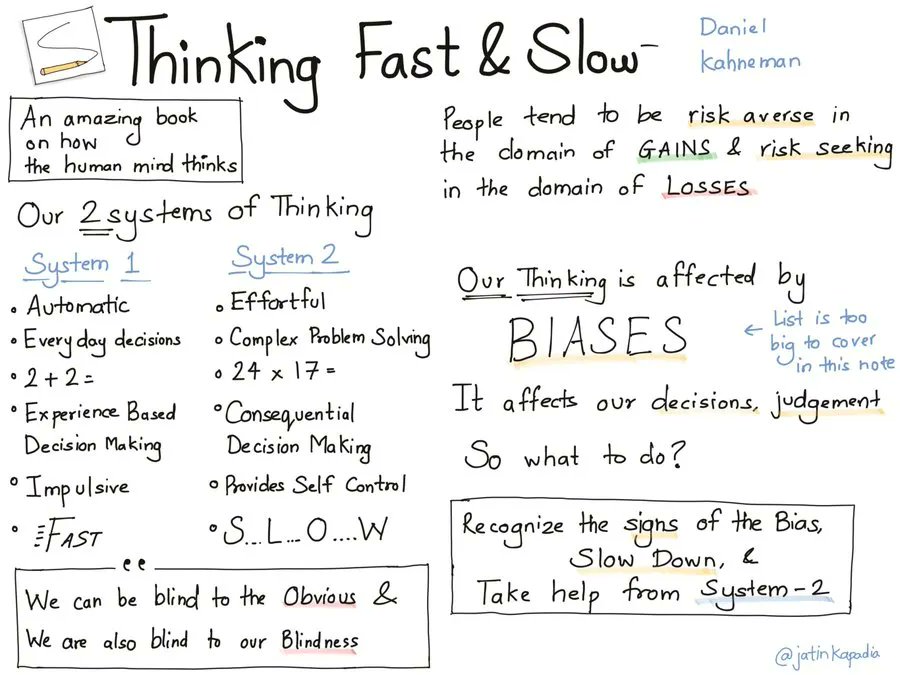 Thinking Fast & Slow
Daniel
Kahneman
An amazing book
on how
the human mind thinks
Our 2 systems of Thinking
System 1
• Automatic
• Everyday decisions
• 2 + 2 =
• Experience Based
Decision Making
• Impulsive
• FAST
System 2
• Effortful
• Complex Problem Solving
• 24 x 17 =
• Consequential
Decision Making
• Provides Self Control
• S...L...O....W
We can be blind to the Obvious &
We are also blind to our Blindness
People tend to be risk averse in
the domain of GAINS & risk seeking
in the domain of LOSSES
Our Thinking is affected by
BIASES
← List is too
big to cover
in this note
It affects our decisions, judgement
So what to do?
Recognize the signs of the Bias,
Slow Down, &
Take help from System-2
@jatinkapadia